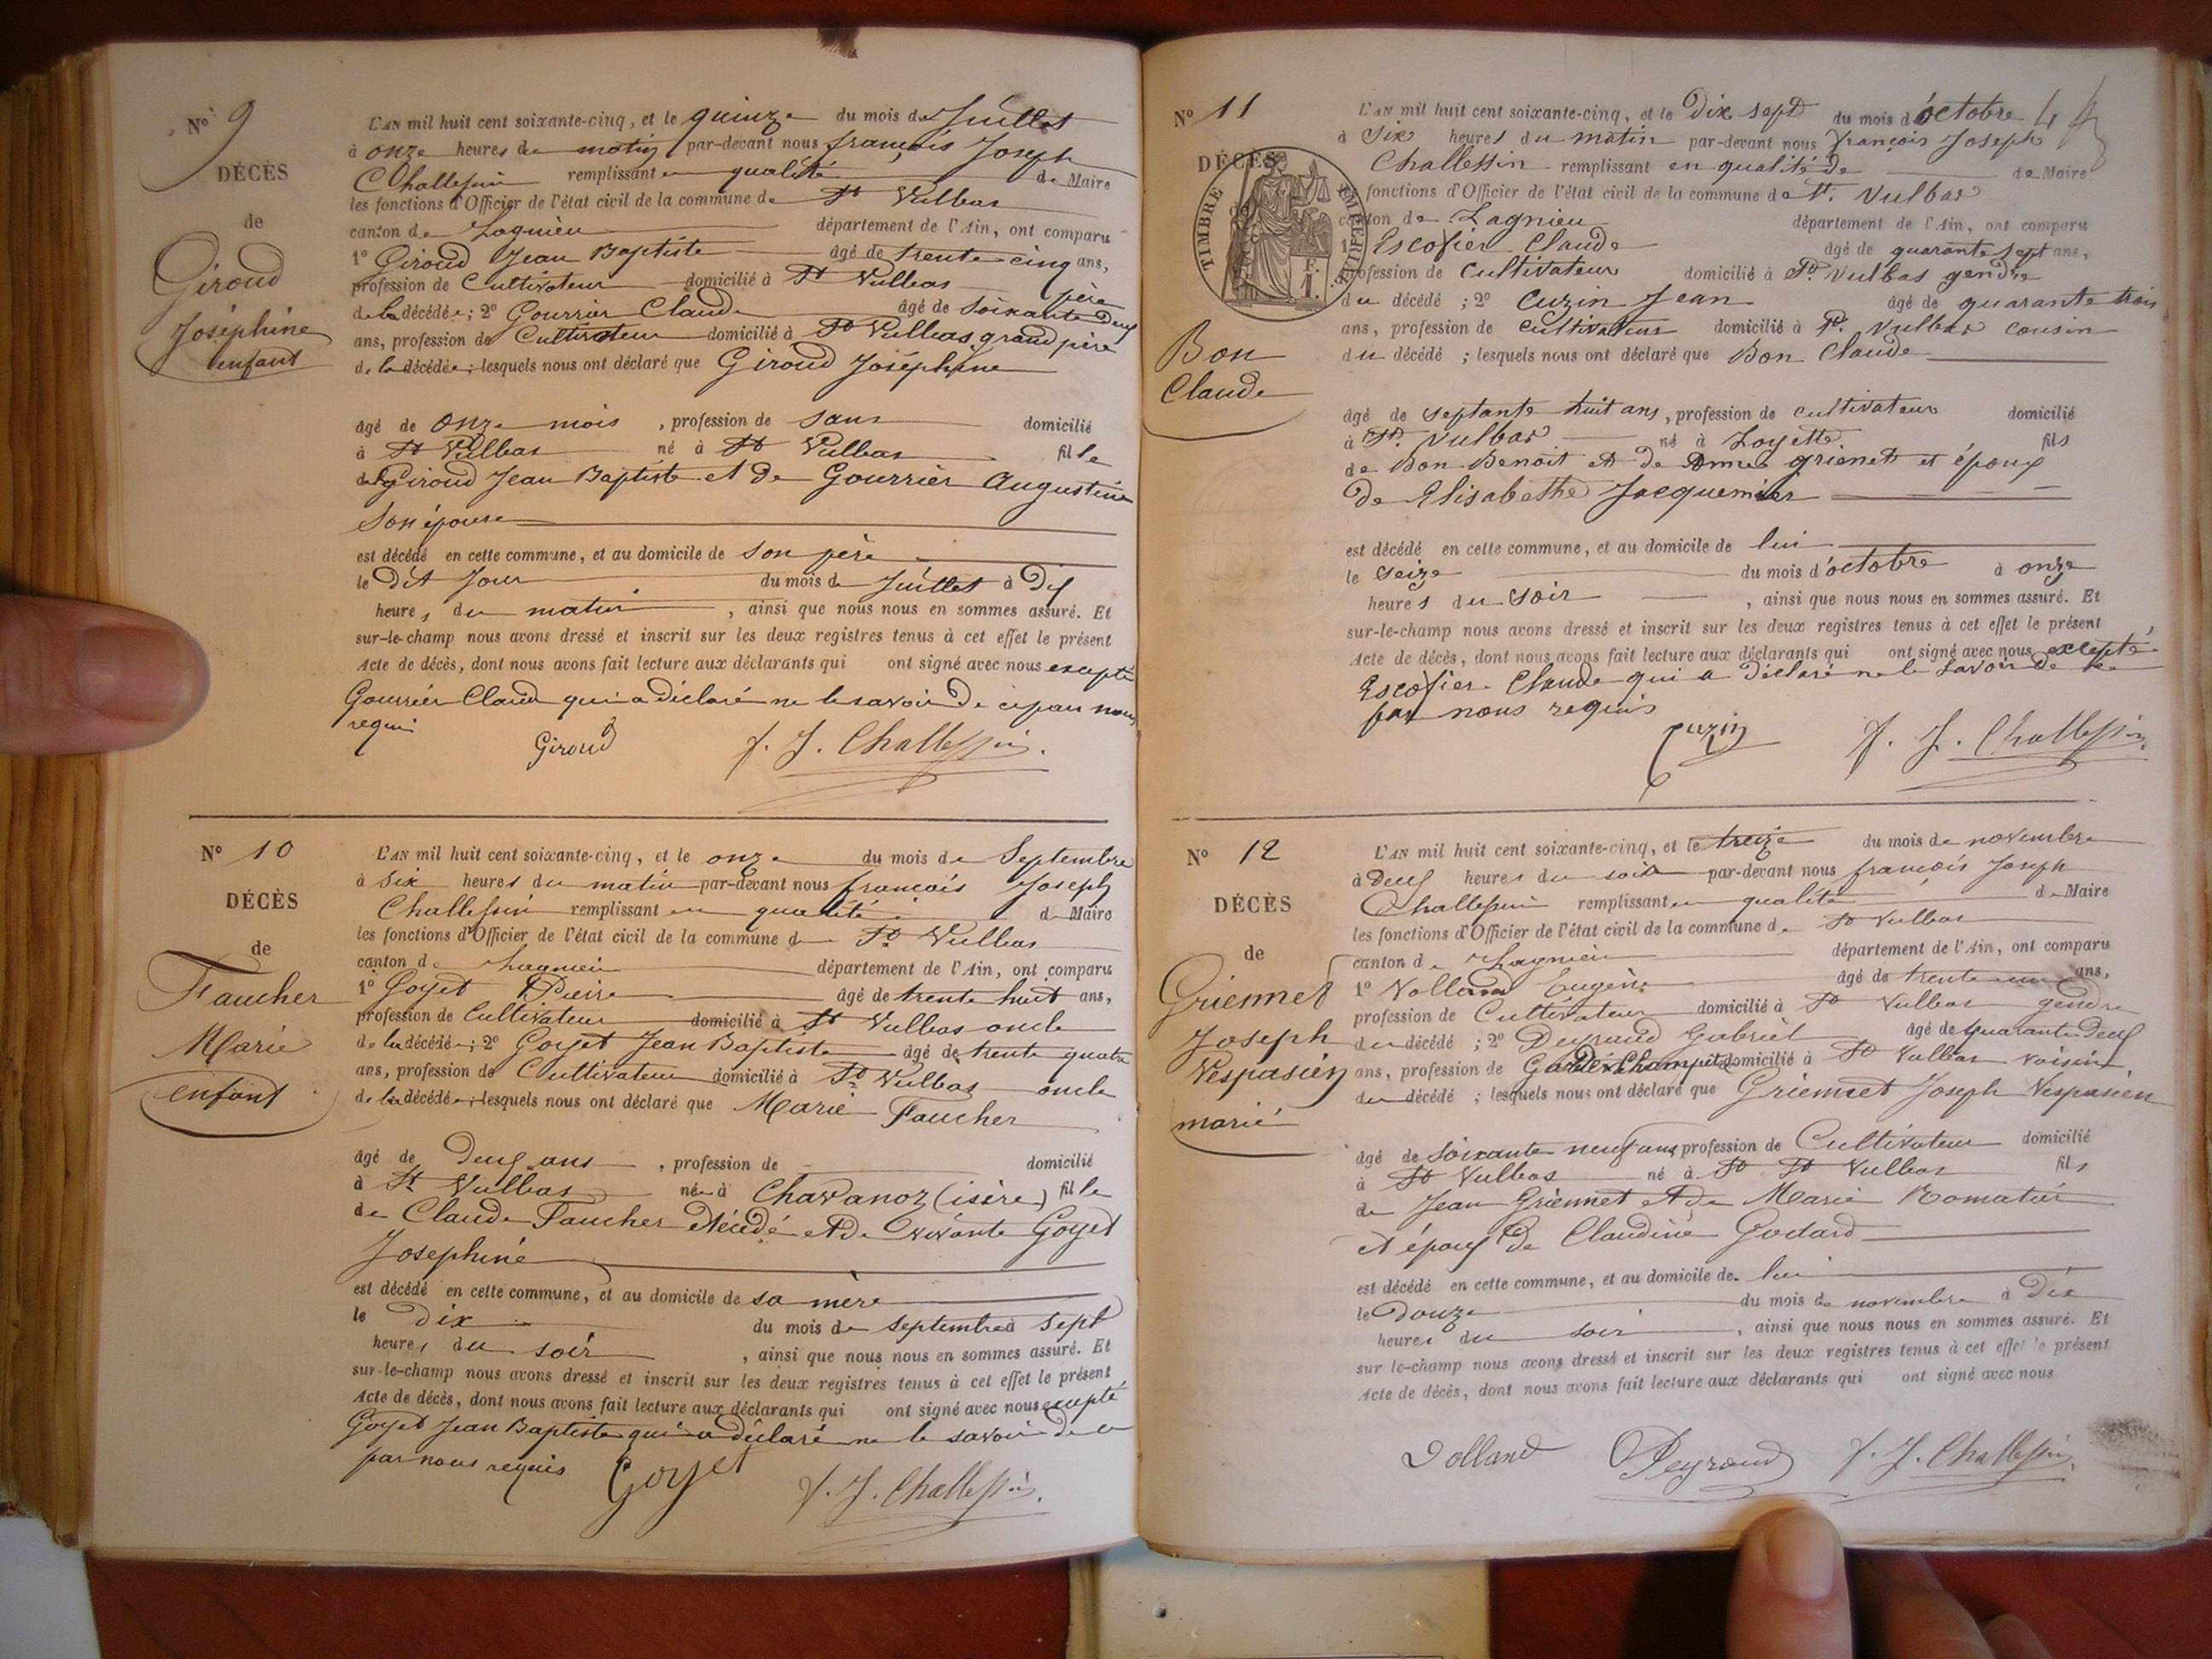 N° 9
DÉCÈS
de
Giroud
Joséphine
enfant
L'AN mil huit cent soixante-cinq, et le quinze du mois de Juillet
à onze heures du matin par-devant nous françois Joseph
Challessin remplissant en qualité de Maire
les fonctions d'Officier de l'état civil de la commune de St Vulbas
canton de Lagnieu département de l'Ain, ont comparu
1° Giroud Jean Baptiste âgé de trente cinq ans,
profession de Cultivateur domicilié à St Vulbas père
de la décédée; 2° Gourrier Claude âgé de soixante deux
ans, profession de Cultivateur domicilié à St Vulbas grand père
de la décédée; lesquels nous ont déclaré que Giroud Joséphine
âgé de onze mois, profession de sans domicilié
à St Vulbas né à St Vulbas fille
de Giroud Jean Baptiste et de Gourrier Augustine
son épouse
est décédé en cette commune, et au domicile de son père
le dit Jour du mois de Juillet à Dix
heures du matin, ainsi que nous nous en sommes assuré. Et
sur-le-champ nous avons dressé et inscrit sur les deux registres tenus à cet effet le présent
Acte de décès, dont nous avons fait lecture aux déclarants qui ont signé avec nous excepté
Gourrier Claude qui a déclaré ne le savoir de ce par nous
requi
Giroud F. J. Challessin.
N° 10
DÉCÈS
de
Faucher
Marie
enfant
L'AN mil huit cent soixante-cinq, et le onze du mois de Septembre
à six heures du matin par-devant nous françois Joseph
Challessin remplissant en qualité de Maire
les fonctions d'Officier de l'état civil de la commune de St Vulbas
canton de Lagnieu département de l'Ain, ont comparu
1° Goyet Pierre âgé de trente huit ans,
profession de Cultivateur domicilié à St Vulbas oncle
de la décédée; 2° Goyet Jean Baptiste âgé de trente quatre
ans, profession de Cultivateur domicilié à St Vulbas oncle
de la décédée; lesquels nous ont déclaré que Marie Faucher
âgé de Deux ans, profession de domicilié
à St Vulbas née à Chavanoz (isère) fille
de Claude Faucher décédé et de vivante Goyet
Josephine
est décédé en cette commune, et au domicile de sa mère
le Dix du mois de septembre à sept
heures du soir, ainsi que nous nous en sommes assuré. Et
sur-le-champ nous avons dressé et inscrit sur les deux registres tenus à cet effet le présent
Acte de décès, dont nous avons fait lecture aux déclarants qui ont signé avec nous excepté
Goyet Jean Baptiste qui a déclaré ne le savoir de ce
par nous requis Goyet F. J. Challessin.
N° 11
DÉCÈS
TIMBRE IMPÉRIAL
1 F.
Bon
Claude
L'AN mil huit cent soixante-cinq, et le Dix sept du mois d'octobre 4
à Six heures du matin par-devant nous françois Joseph
Challessin remplissant en qualité de de Maire
fonctions d'Officier de l'état civil de la commune de St. Vulbas
canton de Lagnieu département de l'Ain, ont comparu
1° Escofier Claude âgé de quarante sept ans,
profession de Cultivateur domicilié à St Vulbas gendre
du décédé; 2° Cuzin Jean âgé de quarante trois
ans, profession de cultivateur domicilié à St. Vulbas cousin
du décédé; lesquels nous ont déclaré que Bon Claude
âgé de septante huit ans, profession de cultivateur domicilié
à St. Vulbas né à Loyette fils
de Bon Benoit et de grienet et époux
de Elisabethe Jacquemier
est décédé en cette commune, et au domicile de lui
le seize du mois d'octobre à onze
heures du soir, ainsi que nous nous en sommes assuré. Et
sur-le-champ nous avons dressé et inscrit sur les deux registres tenus à cet effet le présent
Acte de décès, dont nous avons fait lecture aux déclarants qui ont signé avec nous excepté
Escofier Claude qui a déclaré ne le savoir de ce
par nous requis
Cuzin F. J. Challessin.
N° 12
DÉCÈS
de
Griennet
Joseph
Vespasien
marié
L'AN mil huit cent soixante-cinq, et le treize du mois de novembre
à Deux heures du soir par-devant nous françois Joseph
Challessin remplissant en qualité de Maire
les fonctions d'Officier de l'état civil de la commune de St Vulbas
canton de Lagnieu département de l'Ain, ont comparu
1° Volland Eugène âgé de trente un ans,
profession de Cultivateur domicilié à St Vulbas gendre
du décédé; 2° Peyraud Gabriel âgé de quarante Deux
ans, profession de Garde Champêtre domicilié à St Vulbas voisin
du décédé; lesquels nous ont déclaré que Griennet Joseph Vespasien
âgé de soixante neuf ans profession de Cultivateur domicilié
à St Vulbas né à St St Vulbas fils
de Jean Griennet et de Marie Romatier
et époux de Claudine Godard
est décédé en cette commune, et au domicile de lui
le Douze du mois de novembre à Dix
heures du soir, ainsi que nous nous en sommes assuré. Et
sur le-champ nous avons dressé et inscrit sur les deux registres tenus à cet effet le présent
Acte de décès, dont nous avons fait lecture aux déclarants qui ont signé avec nous
Volland Peyraud F. J. Challessin.